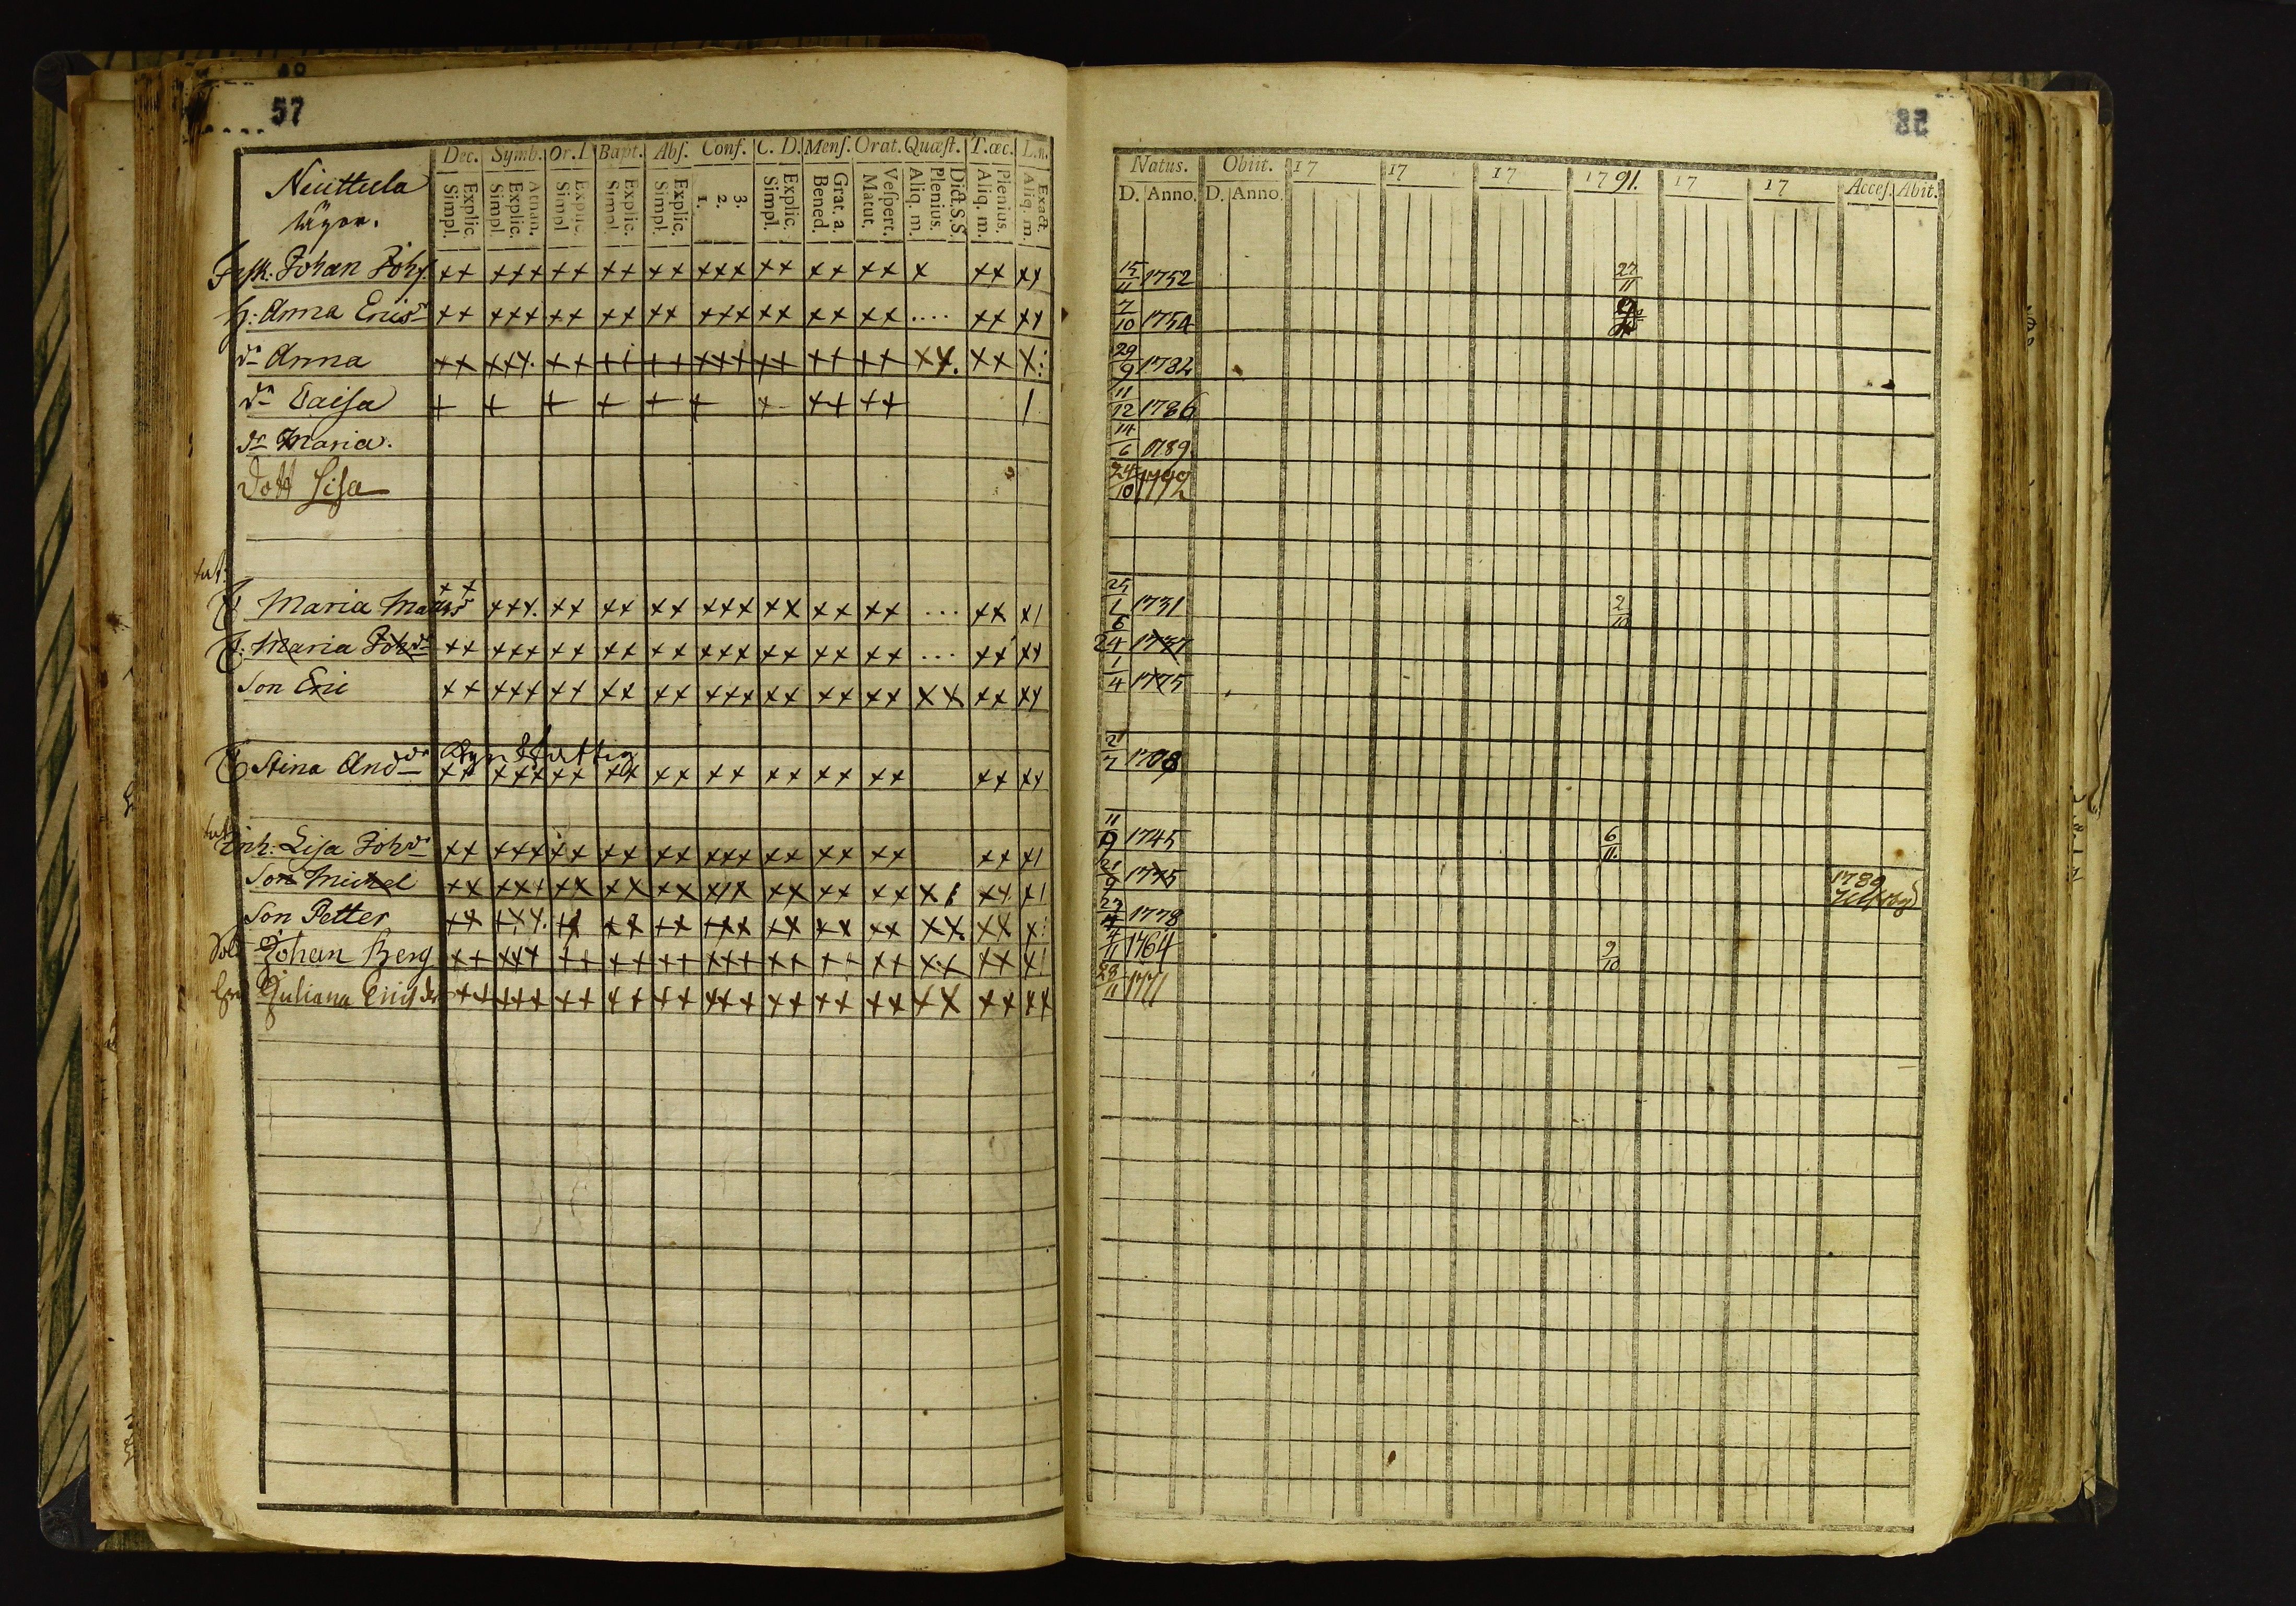 57
Dec. Symb. Or. D. Bapt. Abſ. Conf. C. D. Menſ. Orat. Quæſt. T. œc. L. n.
Explic. Simpl.
Athan. Explic. Simpl.
Explic. Simpl.
Explic. Simpl.
Explic. Simpl.
3. 2. 1.
Explic. Simpl.
Grat. a. Bened.
Veſpert. Matut.
Dict. S.S. Plenius. Aliq. m.
Plenius. Aliq. m.
Exact. Aliq. m.
Niuttula
Johan Johſ.
H: Anna Ericsdr
dr Anna
dr Caisa
dr Maria.
dott Lisa
Maria Matsdr
Maria Johdr
Son Eric
Stina Anddr
Inh: Lisa Johdr
Son Michel
Son Petter
Sold Johan Berg
Juliana Ericsdr
58
Natus. Obiit. 17 17 17 1791. 17 17 Acceſ. Abit.
D. Anno. D. Anno.
15/11 1752 27/11
7/10 1754
29/9 1782
11/12 1786
14/6 1789
24/10 1792
25/1 1731 2/10
24/1 1737
1/4 1775
2/7 1708
11/9 1745 6/11.
21/9 1775 1789
27/4 1778
4/11 1764 9/10
28/11 1771